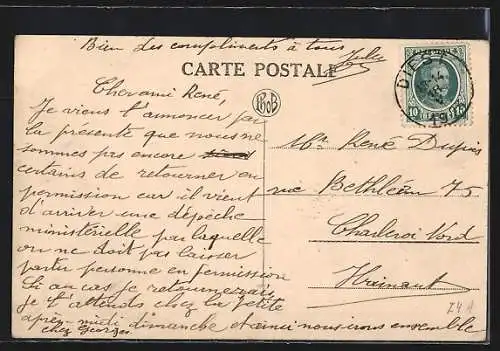 Bien des compliments à tous
Jules
CARTE POSTALE
DIEST
10 10
Cher ami René,
Je viens t'annoncer par
la présente que nous ne
sommes pas encore
certains de retourner en
permission car il vient
d'arriver une dépêche
ministérielle par laquelle
on ne doit pas laisser
partir personne en permission
Si au cas je retournerais
je t'attends chez la petite
après-midi dimanche et ainsi nous irons ensemble
chez Georges
Mr René Dupuis
rue Bethléem 75
Charleroi Nord
Hainaut